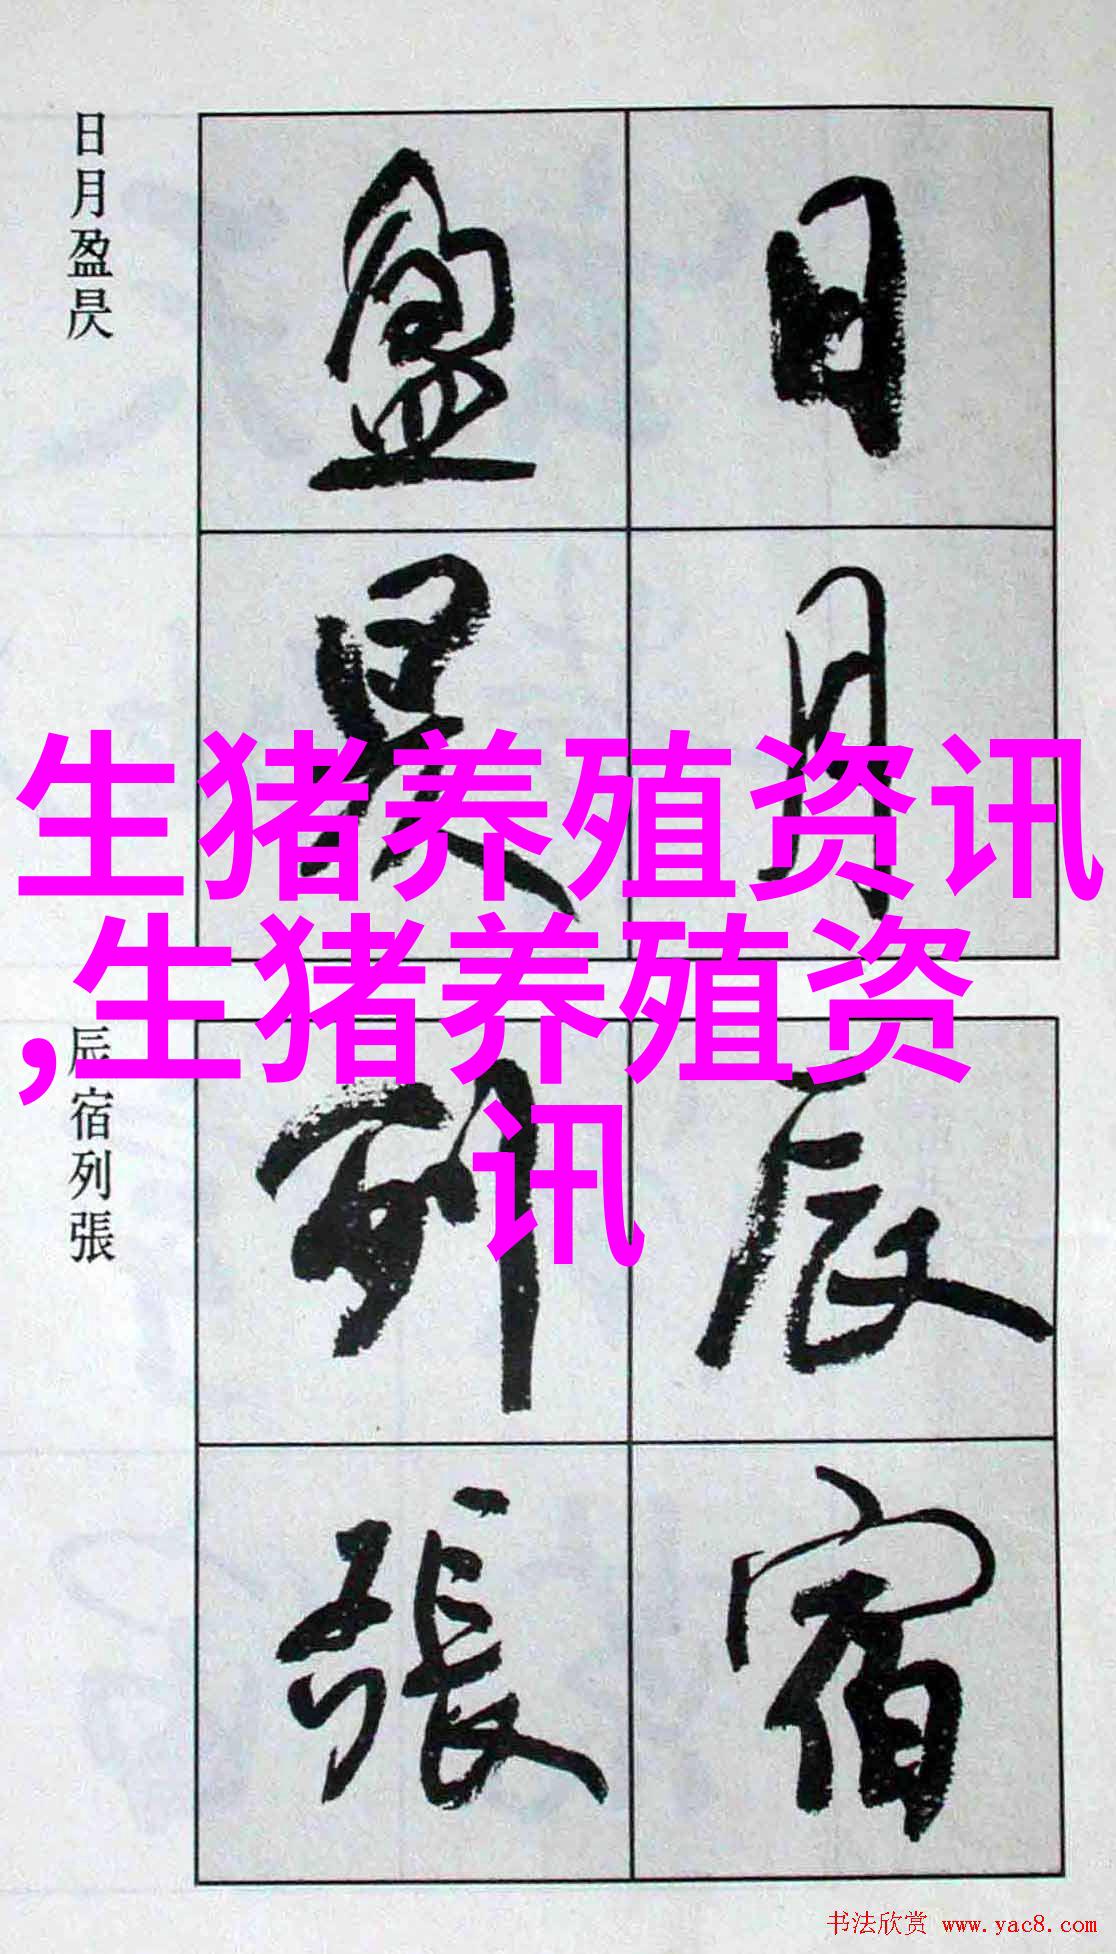 日月盈昃
日月
盈昃
生猪养殖资讯
,生猪养殖资
讯
辰宿列張
辰宿
列張
书法欣赏 www.yac8.com